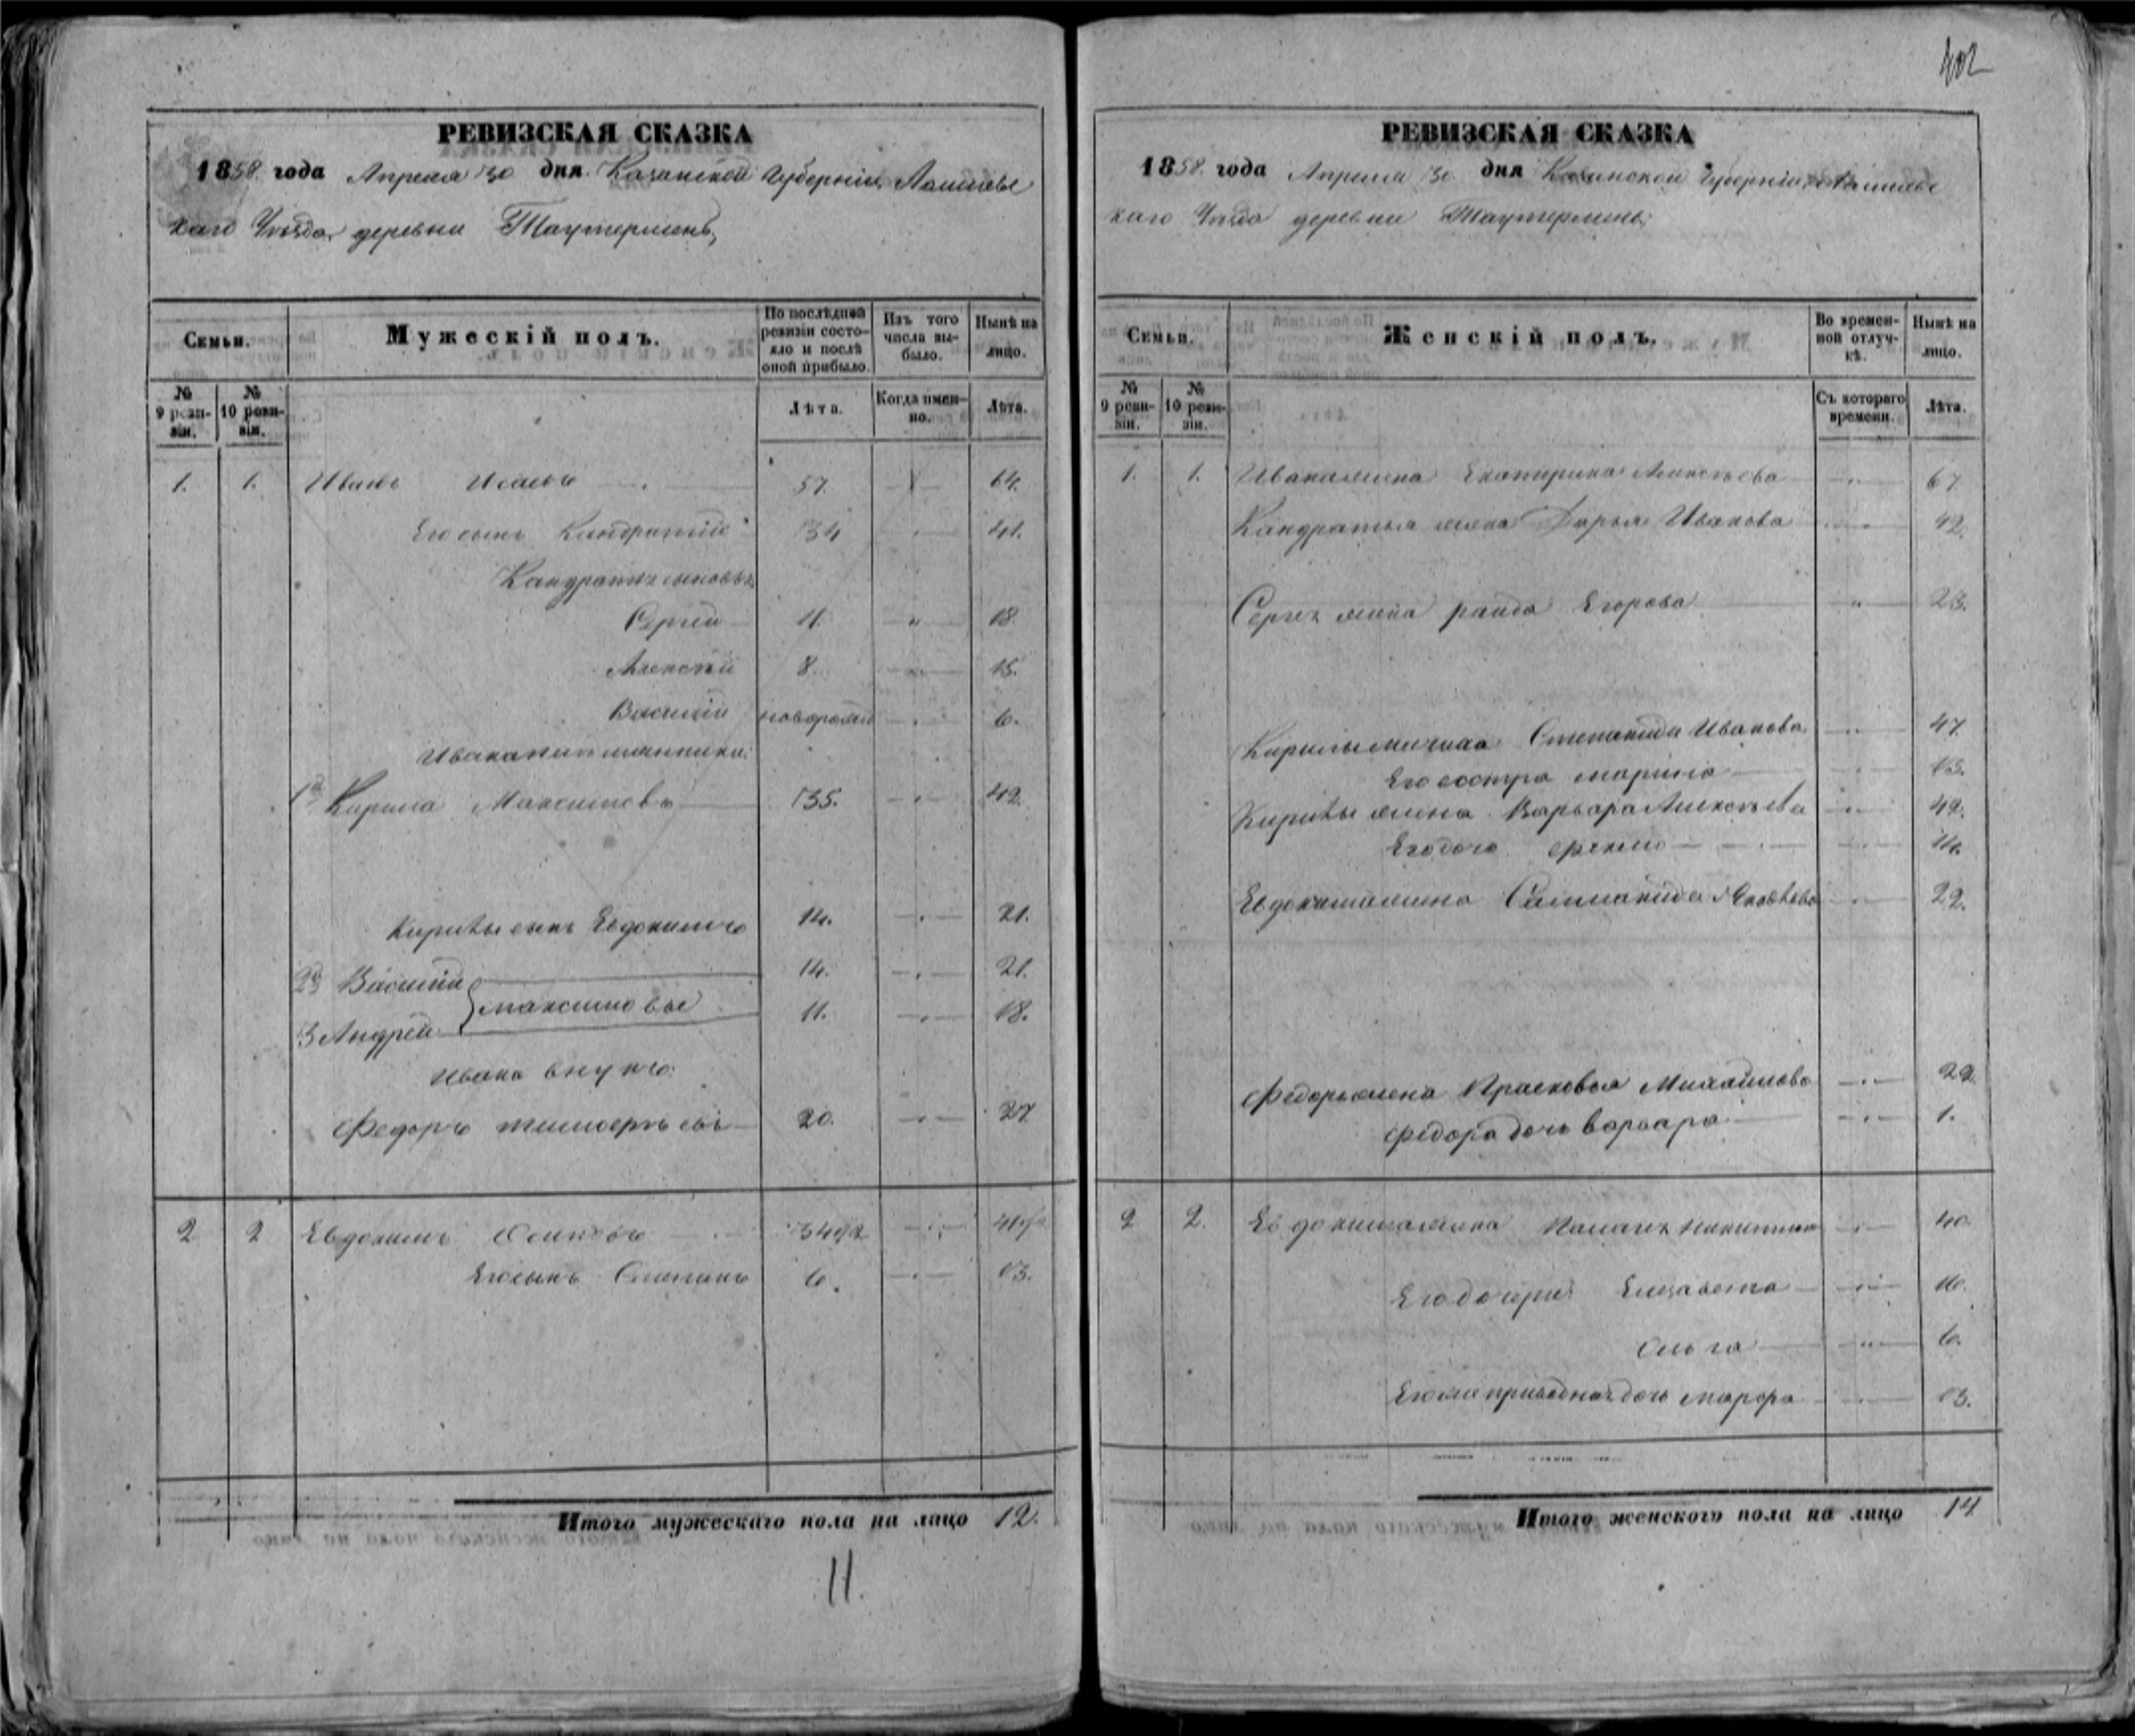 РЕВИЗСКАЯ СКАЗКА
1858 года Апреля 30 дня Казанской Губерніи, Лаишевс
каго Уѣзда, деревни Таутермень,
Семьи.
Мужескій полъ.
По послѣдней ревизіи состояло и послѣ оной прибыло.
Изъ того числа выбыло.
Нынѣ на лицо.
№ 9 ревизіи.
№ 10 ревизіи.
Лѣта.
Когда именно.
Лѣта.
1. 1. Иванъ 57. 64.
Его сынъ Кандратій 34 41.
Кандратья сыновья
Сергій 11 " 18
Алексѣй 8. 15.
Василій новорожд 6.
Ивана племянники:
1й Кирила Максимовъ 35. 42.
Кирилы сынъ Евдокимъ 14. 21.
2й Василій 14. 21.
Максимовы
3 Андрей 11. 18.
Ивана внукъ:
Федоръ 20. 27
2 2 Евдокимъ Осиповъ 34 1/2 41 1/2
Его сынъ Степанъ 6. 13.
Итого мужескаго пола на лицо 12.
11.
402
РЕВИЗСКАЯ СКАЗКА
1858 года Апреля 30 дня Казанской Губерніи, Лаишевс
каго Уѣзда деревни Таутермень;
Семьи.
Женскій полъ.
Во временной отлучкѣ.
Нынѣ на лицо.
№ 9 ревизіи.
№ 10 ревизіи.
Съ котораго времени.
Лѣта.
1. 1. Ивана жена Екатерина Алексѣева 67
Кандратья жена Дарья Иванова 42.
жена Егорова " 23.
Кирилы мачиха Степанида Иванова 47
Его сестра Марина 13.
Кирилы жена Варвара Алексѣева 42.
Его дочь 14.
Евдокима жена Яковлева 22.
жена Прасковья Михайлова 22.
Федора дочь Варвара 1.
2 2. Евдокима жена 40
Его дочери: Елизавета 16.
Ольга 6.
дочь Марфа 13.
Итого женского пола на лицо 14